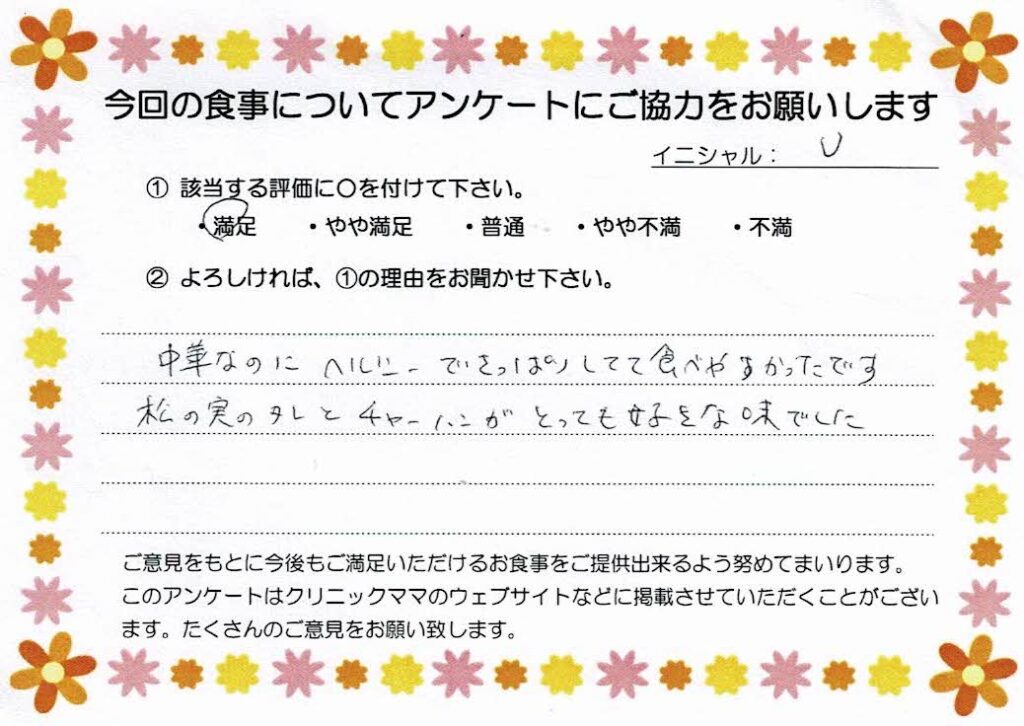 今回の食事についてアンケートにご協力をお願いします
イニシャル： U
① 該当する評価に〇を付けて下さい。
・満足 ・やや満足 ・普通 ・やや不満 ・不満
② よろしければ、①の理由をお聞かせ下さい。
中華なのに ヘルシーでさっぱりしてて食べやすかったです
松の実のタレとチャーハンがとっても好きな味でした
ご意見をもとに今後もご満足いただけるお食事をご提供出来るよう努めてまいります。
このアンケートはクリニックママのウェブサイトなどに掲載させていただくことがござい
ます。たくさんのご意見をお願い致します。